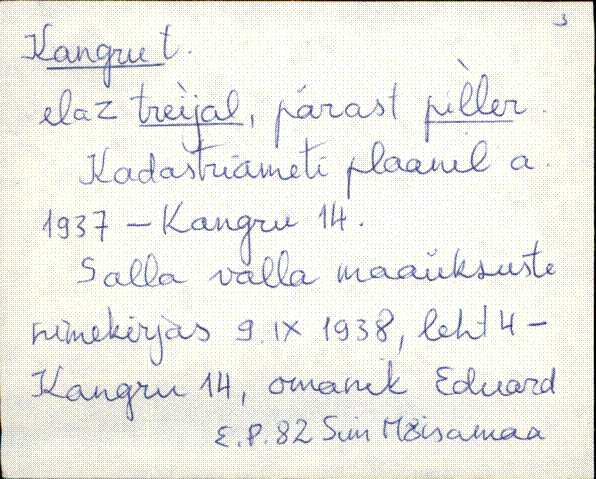 3
Kangru t.
elaz treìjal, pärast pìller.
Kadastriameti plaanil a.
1937 – Kangru 14.
Salla valla maaüksuste
nimekirjas 9. IX 1938, leht 4 –
Kangru 14, omanik Eduard
E.P. 82 Sim Mõisamaa